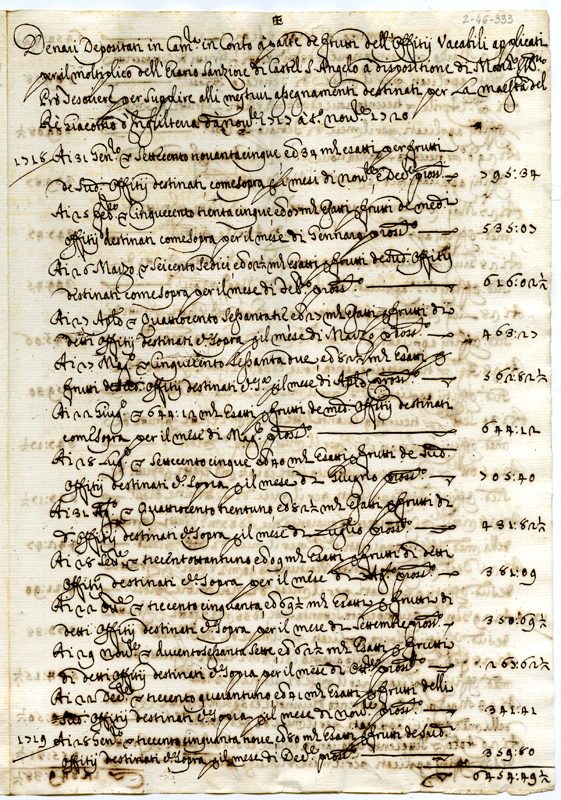 2-46-333
Denari Depositati in Cam.ra in Conto à parte de frutti dell'Offitij Vacabili applicati
per il moltiplico dell'Erario Sanziore di Castel S. Angelo a dispositione di Mons.
Pro Tesoriere per Supplire alli mestrui assegnamenti destinati per La maestà del
Rè Giacomo d'Inghilterra da nov.re 1717 a t.o nov.re 1720
1718 Ai 31 Gen.o Settecento novantacinque ed 34 m.ta esatti per frutti
de Sud. Offitij destinati come sopra p i mesi di nov.re e Dec.re pross.o 795:34
Ai 25 feb.o Cinquecento trenta cinque ed 03 m.ta Esatti p frutti de med.i
Offitij destinati come Sopra per il mese di Gennaro pross.o 535:03
Ai 26 Marzo Seicento Sedici ed 02½ m.ta Esatti p frutti de Sud. Offitij
destinati come Sopra per il mese di feb.o pross.o 616:02½
Ai 27 Aple Quattrocento Sessantatre ed 27 m.ta Esatti p frutti di
detti Offitij destinati c.e Sopra p il mese di Marzo pross.o 463:27
Ai 27 Mag.o Cinquecento Sessanta due, ed 82½ m.ta Esatti p
frutti de Offitij destinati c.e S.a p il mese di Aple pross.o 562:82½
Ai 22 Giug.o 644:12 m.ta Esatti p frutti de med. Offitij destinati
come Sopra per il mese di Mag.o pross.o 644:12
Ai 28 Lug.o Settecento cinque ed 40 m.ta Esatti p frutti de Sud.
Offitij destinati c.e Sopra p il mese di Giugno pross.o 705:40
Ai 31 Ag.o Quattrocento trentuno ed 82½ m.ta Esatti p frutti di
d. Offitij destinati c.e Sopra p il mese di Luglio pross.o 431:82½
Ai 28 Sett.re trecentottantuno ed 09 m.ta Esatti p frutti di detti
Offitij destinati c.e Sopra per il mese di Ag.o pross.o 381:09
Ai 22 Ott.re trecento cinquanta, ed 69½ m.ta Esatti p frutti di
detti Offitij destinati c.e Sopra per il mese di Settembre pross.o 350:69½
Ai 29 Nov.re duventosessanta Sette, ed 62½ m.ta Esatti p frutti
di detti Offitij destinati c.e Sopra per il mese di Ott.re pross.o 267:62½
Ai 22 Dec.re trecento quarantuno ed 41 m.ta Esatti p frutti delli
Sud. Offitij destinati c.e Sopra p il mese di nov.re pross.o 341:41
1719 Ai 28 Gen.o trecento cinquanta nove, ed 80 m.ta Esatti p frutti de Sud.
Offitij destinati c.e Sopra p il mese di Dec.re pross.o 359:80
6454:49½